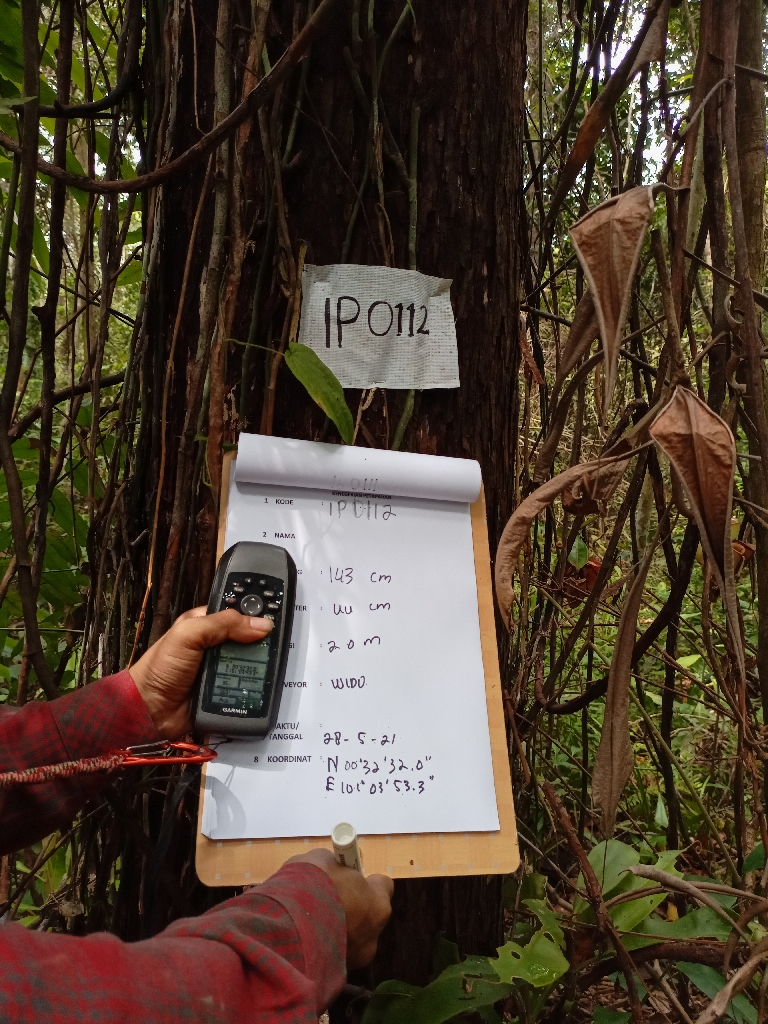 IP0112
1 KODE : IP0112
2 NAMA
: 143 cm
: 44 cm
: 20 m
VEYOR : WIDO
AKTU/
TANGGAL : 28-5-21
8 KOORDINAT : N 00°32'32.0"
E 101°03'53.3"
GARMIN